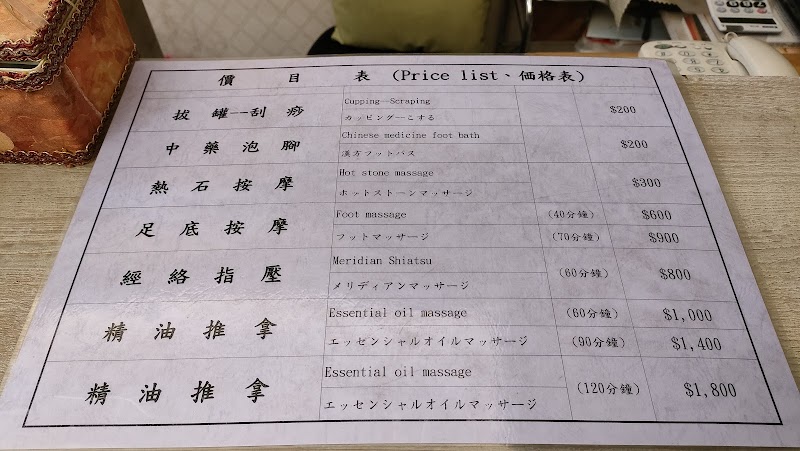 價目表 (Price list、価格表)
拔罐--刮痧 Cupping—Scraping $200
カッピング—こする
中藥泡腳 Chinese medicine foot bath $200
漢方フットバス
熱石按摩 Hot stone massage $300
ホットストーンマッサージ
足底按摩 Foot massage (40分鐘) $600
フットマッサージ (70分鐘) $900
經絡指壓 Meridian Shiatsu (60分鐘) $800
メリディアンマッサージ
精油推拿 Essential oil massage (60分鐘) $1,000
エッセンシャルオイルマッサージ (90分鐘) $1,400
精油推拿 Essential oil massage (120分鐘) $1,800
エッセンシャルオイルマッサージ